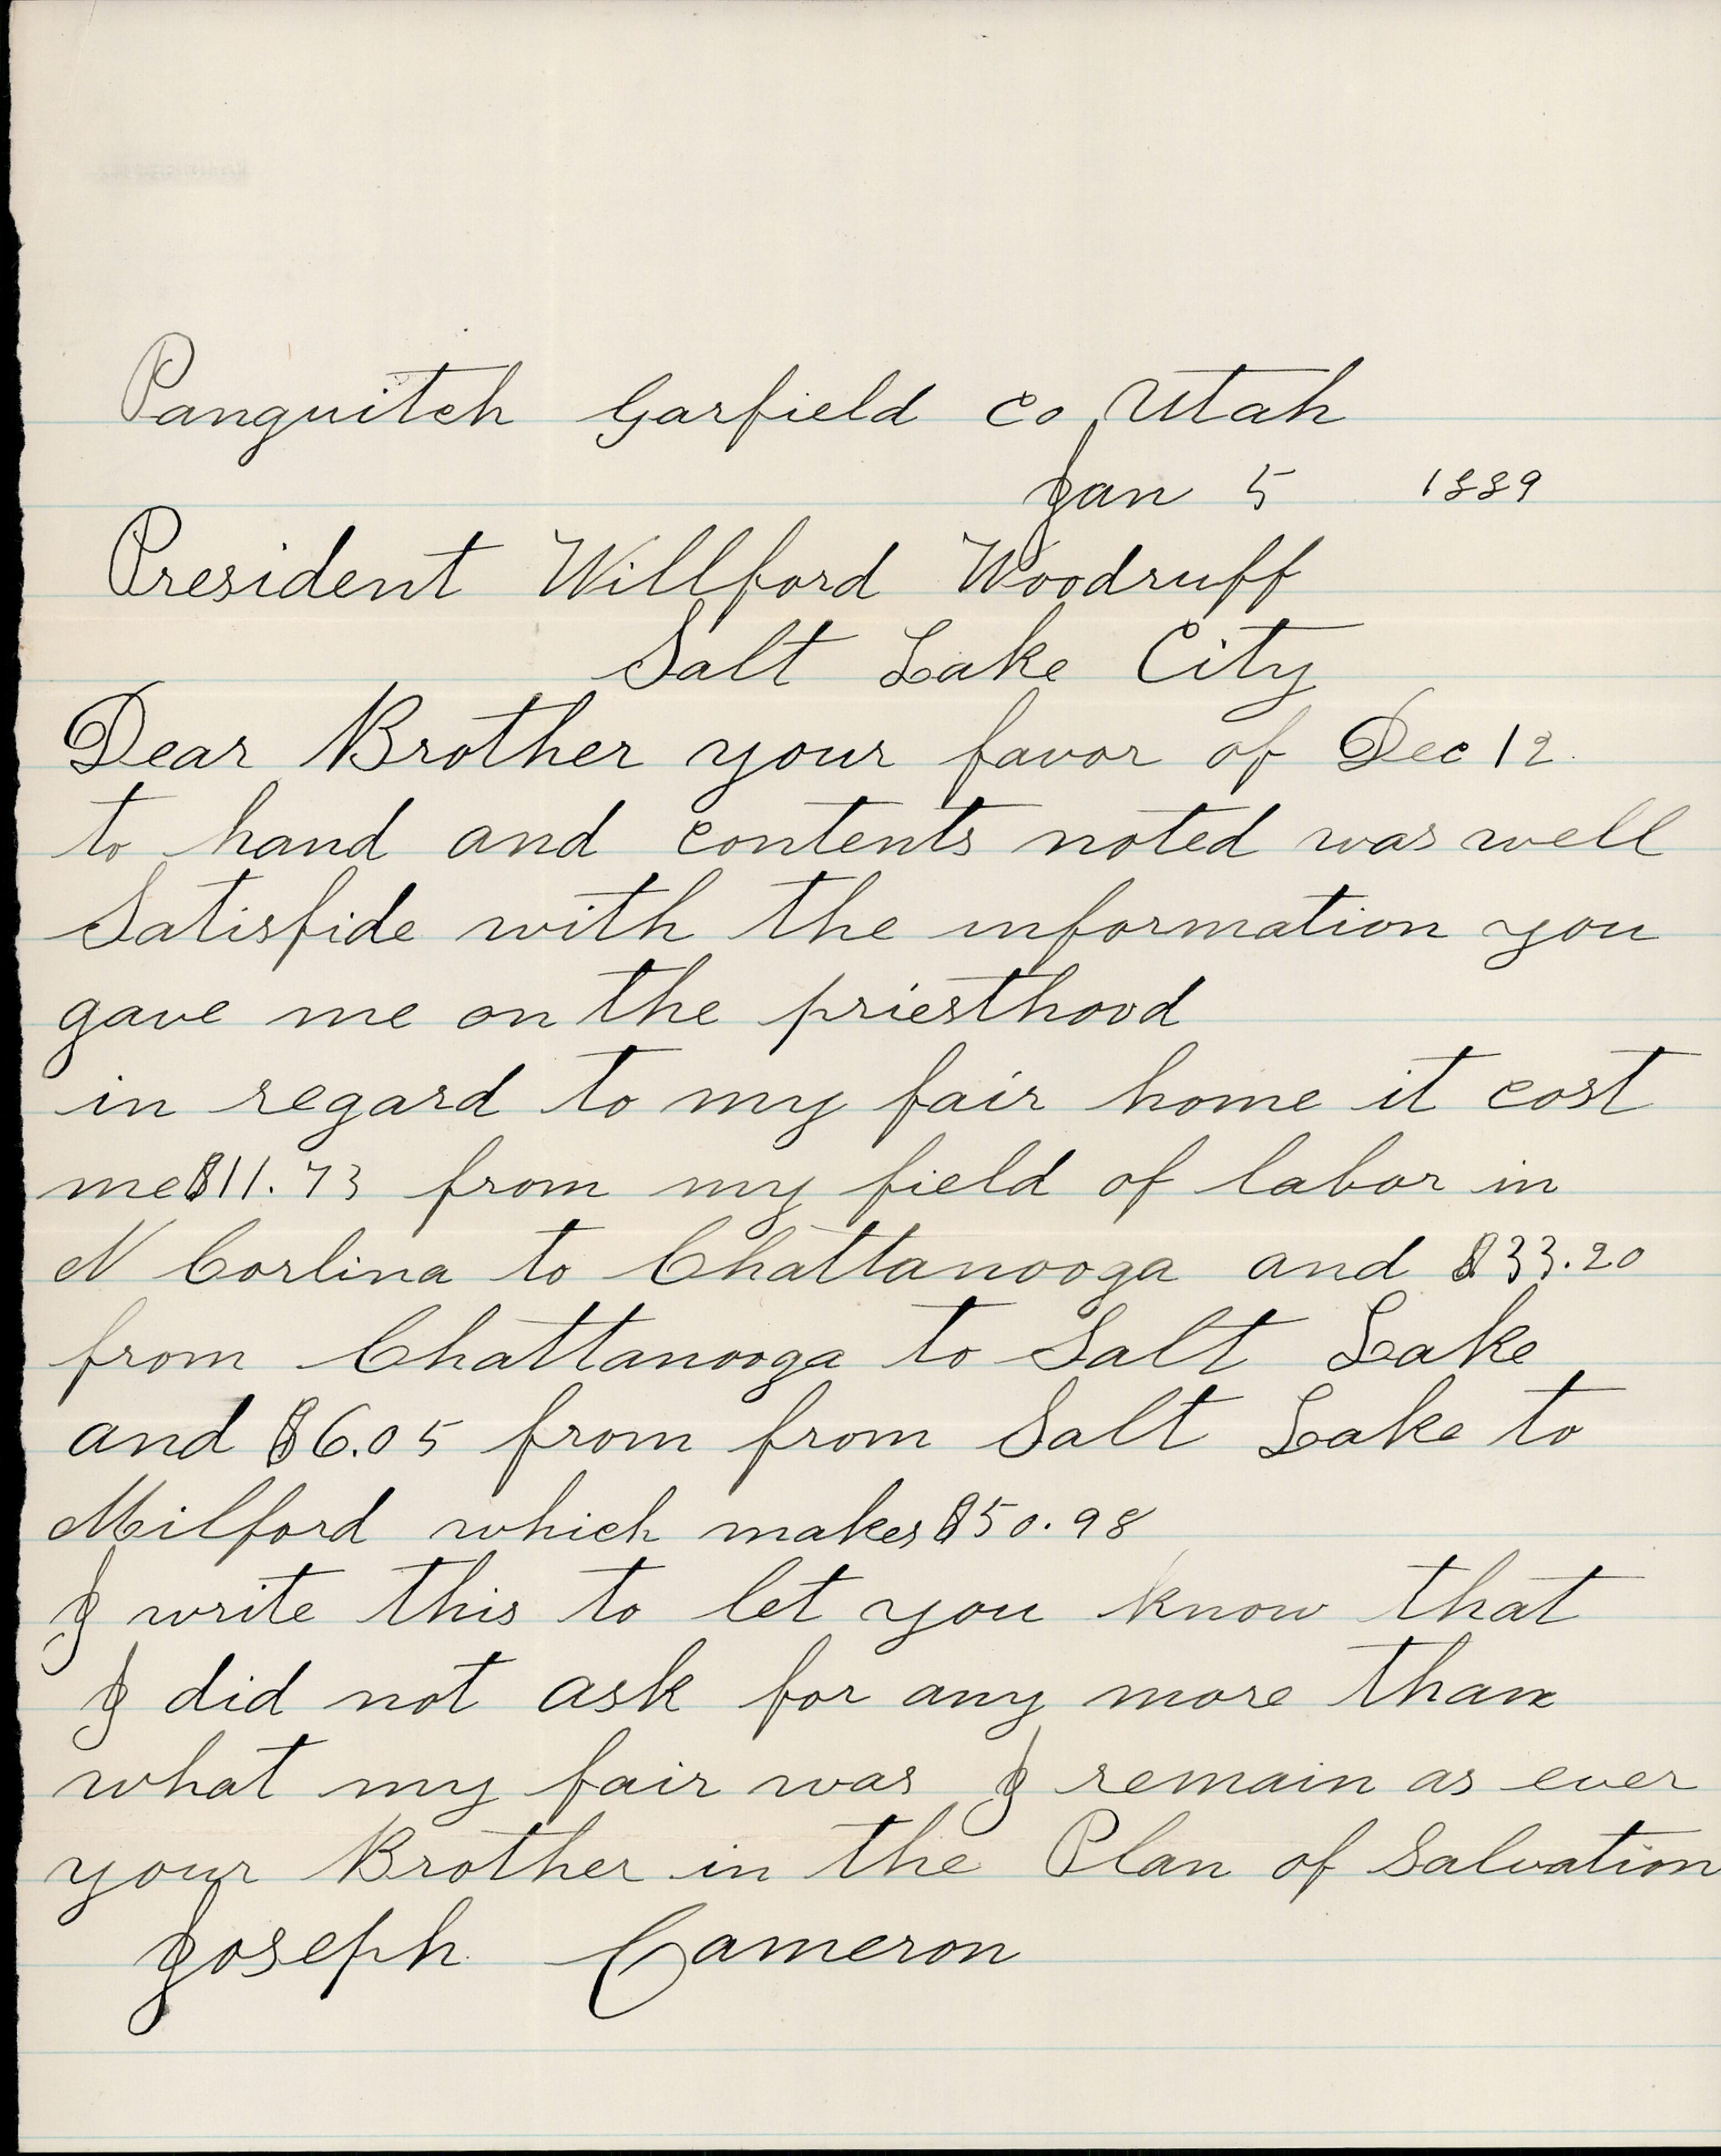 Panguitch Garfield co Utah
Jan 5 1889
President Willford Woodruff
Salt Lake City
Dear Brother your favor of Dec 12
to hand and contents noted was well
Satisfide with the information you
gave me on the priesthood
in regard to my fair home it cost
me $11.73 from my field of labor in
N Corlina to Chattanooga and $33.20
from Chattanooga to Salt Lake
and $6.05 from from Salt Lake to
Milford which makes $50.98
I write this to let you know that
I did not ask for any more than
what my fair was I remain as ever
your Brother in the Plan of Salvation
Joseph Cameron